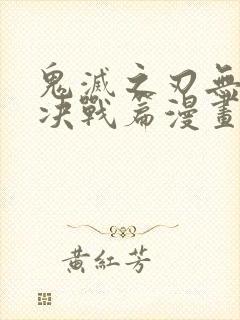 鬼滅之刃無
决戰篇漫畫
黃紅芳